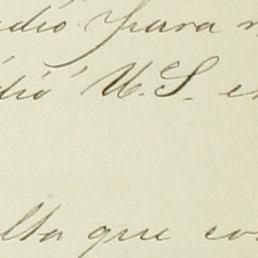 dió para
dió U.S.
lta que co